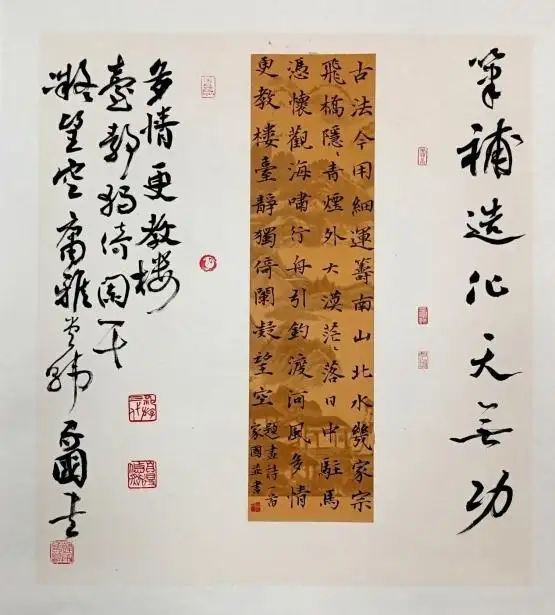 筆補造化天無功
古法今用細運籌南山北水幾家宗
飛橋隱〻青煙外大漠茫〻落日中駐馬
憑懷觀海嘯行舟引釣渡河風多情
更教樓臺靜獨倚闌凝望空
題畫詩一首
家國並書
多情更教楼
臺靜獨倚闌
凝望空庸雅堂